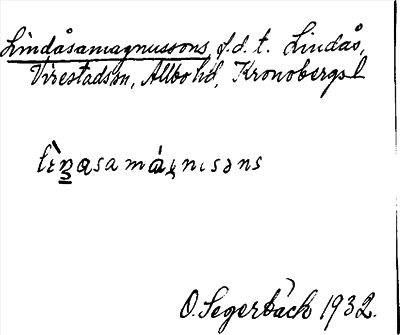 Lindåsamagnussons, f.d. t. Lindås,
Virestadssn, Allbo hd, Kronobergs l
O. Segerbäck 1932.